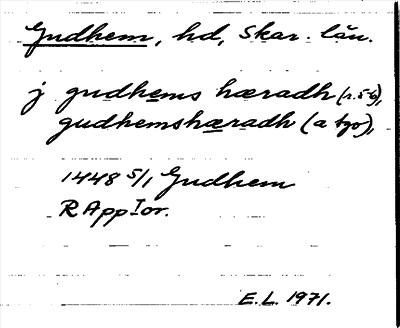 Gudhem, hd, Skar. län.
j gudhems hæradh (r. 56),
gudhemshæradh (a tgo),
1448 5/1 Gudhem
RAppIor.
E.L. 1971.